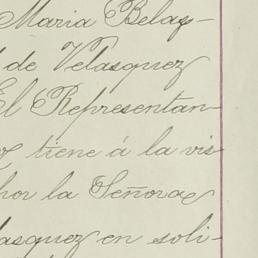 Maria Belas-
de Velasquez
El Representan
tiene á la vis
por la Señora
lasquez en soli-